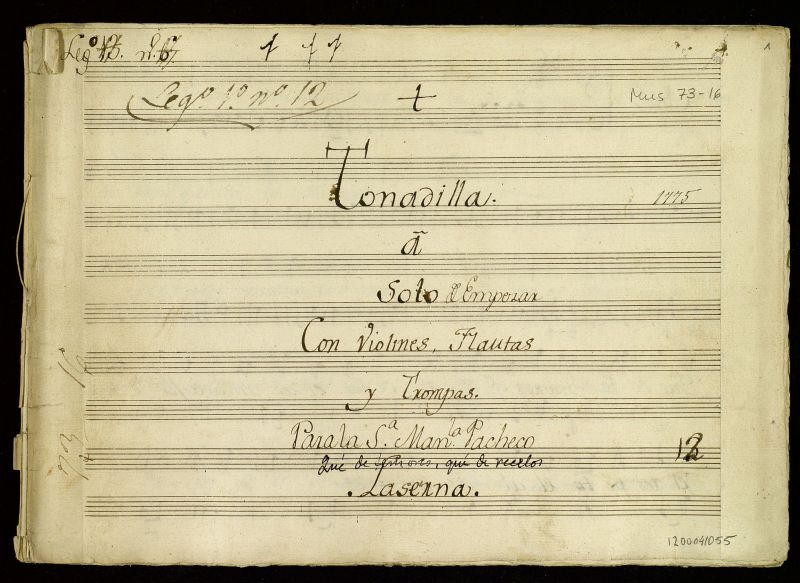 Leg.º 13. n.º 67.
Leg.º 1.º n.º 12
Mus 73-16
1
Tonadilla.
1775
ã
Solo de Empezar
Con Violines, Flautas
y Trompas.
Para la S.ª Man.la Pacheco
Qué de temores, qué de recelos
12
.Laserna.
1200041055